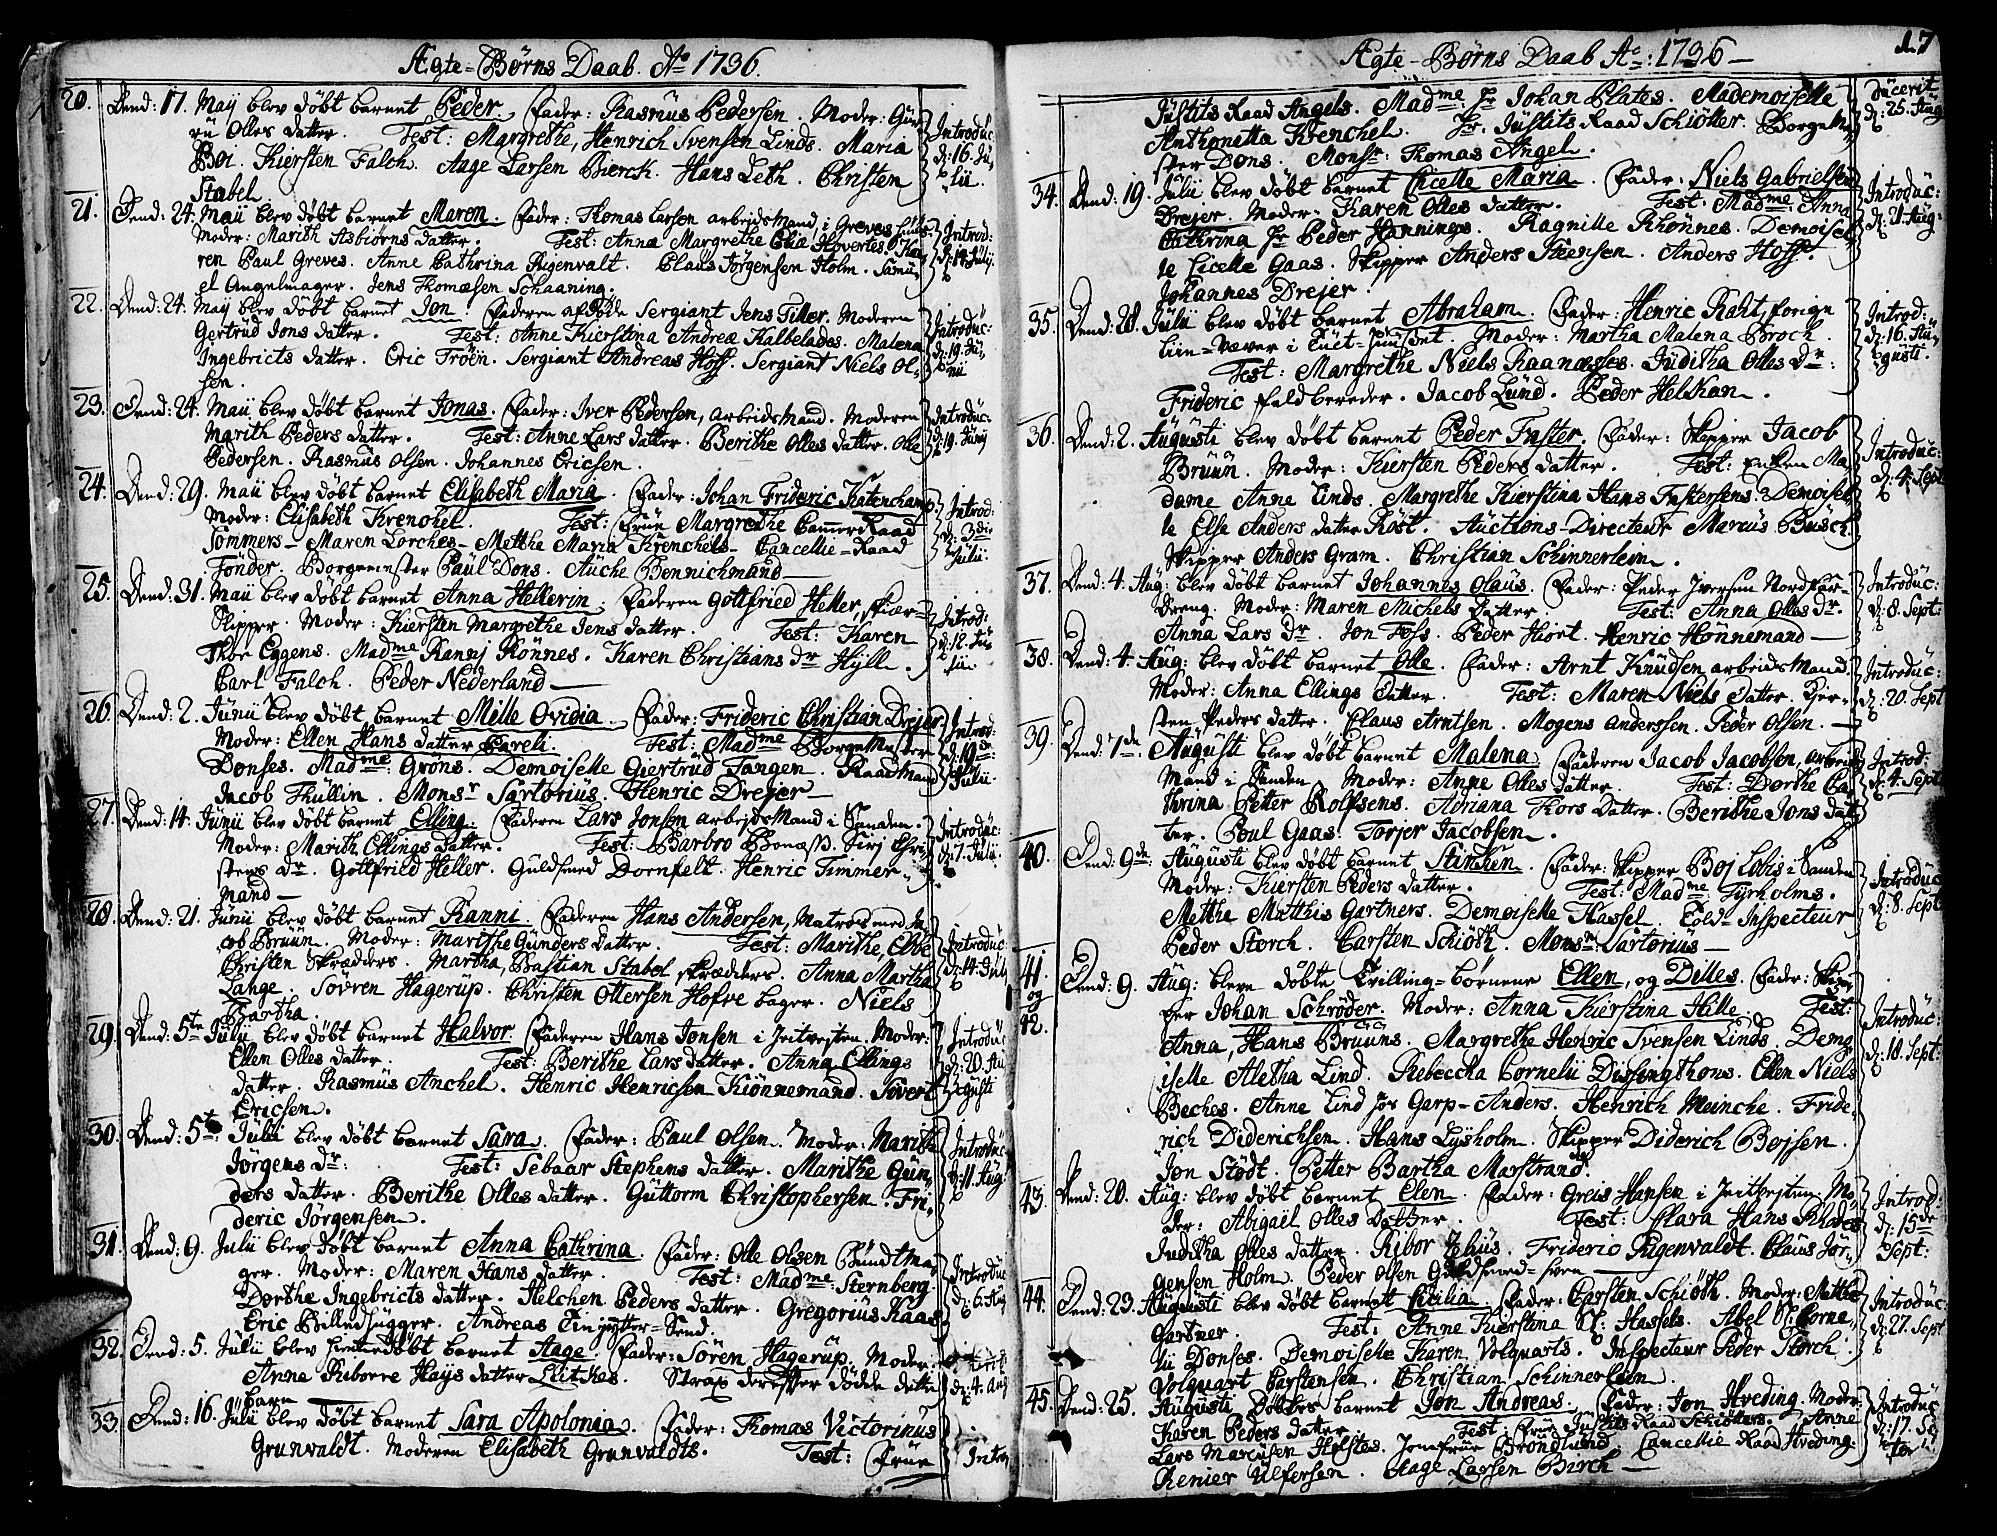 Ægte-Børns Daab. Aº 1736.
20. Dend: 17. Maÿ blev døbt barnet Peder. Fader: Rasmus Pedersen. Moder: Gu-
ru Olles datter. Test: Margrethe, Henrich Svensen Linds. Maria
Boi. Kiersten Falch. Aage Larsen Bierck. Hans Leth. Christen
Stabel.
Introduc:
d: 16. Ju-
lii.
21. Dend: 24. Maii blev døbt barnet Maren. Fader: Thomas Larsen arbeidsmand, i Greves
Moder: Marith Asbiørns datter. Test: Anna Margrethe Hoverts. Ka-
ren Paul Greves. Anne Cathrina Rigenvalt. Claus Jørgensen Holm. Samu-
el Angelmager. Jens Thomæsen Schaaning.
Introd:
22. Dend: 24. Maÿ blev døbt barnet Jon. Faderen afdøde Sergiant Jens Tiller. Moderen
Gertrud Jons datter. Test: Anne Kierstina Andrea Kalbelades. Malena
Ingebricts datter. Eric Frøen. Sergiant Andreas Hoff. Sergiant Niels Ol-
sen.
Introduc:
d: 19. Ju-
nii
23. Dend: 24. Maii blev døbt barnet Jonas. Fader: Iver Pedersen, arbeidsmand. Moderen
Marith Peders datter. Test: Anne Lars datter. Berithe Olles datter. Olle
Pedersen. Rasmus Olsen. Johannes Ericsen.
Introduc:
d: 19. Junij
24. Dend: 29. Maii blev døbt barnet Elisabeth Maria. Fader: Johan Frideric Katenchamp
Moder: Elisabeth Krenchel. Test: Frue Margrethe CammerRaad
Sommers- Maren Lorches- Metthe Maria Krenchels- Cancellie-Raad
Tønder. Borgemester Paul Dons. Auche Bennichmand-
Introd:
d: 3die
Julii.
25. Dend: 31. Maii blev døbt barnet Anna Hellerin. Faderen Gottfried Heller,
Skipper. Moder: Kiersten Margrethe Jens datter. Test: Karen
Thor Eggens. Madme Ranni Rønnes. Karen Christians dr Hyll.
Carl Falch. Peder Nederland-
Introd:
d: 12. Ju-
lii
26. Dend: 2. Junii blev døbt barnet Mille Ovidia. Fader: Frideric Christian Drejer.
Moder: Ellen Hans datter Careli. Test: Madme Borgemester
Donses. Madme: Grøns. Demoiselle Giertrud Tangen. Raadmand
Jacob Thullin. Monsr Sartorius. Henric Drejer-
Introd:
Julii.
27. Dend: 14. Junii blev døbt barnet Elling. Faderen Lars Jonsen arbejdsmand i Sanden.
Moder: Marith Ellings datter. Test: Barbro Bonæss. Sirj Chri-
stens dr. Gottfried Heller. Guldsmed Dornfelt. Henric Timmer-
mand-
Introduc:
d: 7. Julii
28. Dend: 21. Junii blev døbt barnet Ranni. Faderen Hans Andersen, Matros med Ja-
cob Bruun. Moder: Marithe Gunders datter. Test: Marithe,
Christen Skrædders. Martha, Bastian Stabel skrædders. Anna Martha
Lange. Søvren Hagerup. Christen Ottersen Hofre bager. Niels
Bartha.
Introduc:
d: 14. Julii
29. Dend: 5te Julii blev døbt barnet Halvor. Faderen Hans Jonsen i . Moder:
Ellen Olles datter. Test: Berithe Lars datter. Anna Ellings
datter. Rasmus Anchel. Henric Henricsen Kiønnemand. Sivert
Ericsen.
Introduc
d: 20. Au
gusti
30. Dend: 5te: Julii blev døbt barnet Sara. Fader: Paul Olsen. Moder: Marithe
Jørgens dr: Test: Sebaar Stephens datter. Marithe Gun-
ders datter. Berithe Olles datter. Guttorm Christophersen. Fri-
deric Jørgensen.
Introduc
d: 11. Aug:
31. Dend: 9. Julii blev døbt barnet Anna Cathrina. Fader: Olle Olsen Bundtma-
ger. Moder: Maren Hans datter. Test: Madme: Sternberg.
Dorthe Ingebricts datter. Helchen Peders datter. Gregorius Kaas
Eric Billedhugger. Andreas
Introduc
d: 6. Aug
32. Dend: 5. Julii blev hiemmedøbt barnet Aage. Fader: Søren Hagerup. Moder:
Anne Riborre Hays datter Klitkas. Strax derefter døde dette
barn
d: 4. Aug
33. Dend: 16. Julii blev døbt barnet Sara Apolonia. Fader: Thomas Victorinus
Grunvaldt. Moderen Elisabeth Grunvaldts. Test: Frue
Intro
Ægte-Børns Daab Aº: 1736- 17
Justits Raad Angels. Madme: Sr Johan Plates. Mademoiselle
Anthonetta Krenchel. Hr. Justits Raad Schiøtter. Borgeme-
ster Dons. Monsr: Thomas Angel.
ducerit
d: 25. Aug
34. Dend: 19. Julii blev døbt barnet Cicelle Maria. Fader: Niels Gabrielsen
Drejer. Moder: Karen Olles datter. Test: Madme: Anna
Cathrina Sr Peder Hannings. Ragnille Rhønnes. Demoisel-
le Cicelle Gaas. Skipper Anders Steensen. Anders Hoff.
Johannes Drejer.
Introduc:
d: 21 Aug:
35. Dend: 28. Julii blev døbt barnet Abraham. Fader: Henric Raht, forige
Liin-Væver i Tuct-huuset. Moder: Martha Malena Broch.
Test: Margrethe Niels Raanæsses. Juditha Olles dr:
Frideric Feldbereder. Jacob Lund. Peder Helkan.
Introd:
d: 16. Au-
gusti.
36. Dend: 2. Augusti blev døbt barnet Peder Faster. Fader: Skipper Jacob
Bruun. Moder: Kiersten Peders datter. Test: Enken Ma-
dame Anne Linds. Margrethe Kierstina Hans Fastersens. Demoisel-
le Else Anders datter Røst. Auctions-Directeur Marcus Busch.
Skipper Anders Gram. Christian Schinnerlem.
Introduc:
d: 4. Sept
37. Dend: 4. Aug: blev døbt barnet Johannes Olaus. Fader: Peder Iversen Nordfar-
Dreng. Moder: Maren Michels datter. Test: Anna Olles dr.
Anna Lars dr. Jon Foss. Peder Hiort. Henric Hønnemand-
Introduc:
d: 8. Sept:
38. Dend: 4. Aug: blev døbt barnet Olle. Fader: Arnt Knudsen, arbeidsmand.
Moder: Anna Ellings datter. Test: Maren Niels datter. Kier-
sten Peders datter. Claus Arntsen. Mogens Anderssen. Peder Olsen.
Introduc:
d: 20. Sept
39. Dend: 7de Augusti blev døbt barnet Malena. Faderen Jacob Jacobsen, arbeids
Mand i Sanden. Moder: Anne Olles datter. Test: Dorthe Ca-
thrina Petter Rolfsens. Adriana Thors Datter. Berithe Jons dat-
ter. Poul Gaas. Torjer Jacobsen.
Introd:
d: 4. Sept
40. Dend: 9de: Augusti blev døbt barnet Stinchen. Fader: Skipper Boj Lobis i Sanden
Moder: Kiersten Peders datter. Test: Madme Tyrholms.
Metthe Matthis Gartners. Demoiselle Hassel. Told-Inspecteur
Peder Storch. Carsten Schiøth. Monsr Sartorius-
Introduc
d: 8. Sept
41. og 42. Dend: 9. Aug: bleve døbte Tvilling-børnene Ellen, og Dilles. Fader: Skip-
per Johan Schrøder. Moder: Anna Kierstina Hille. Test:
Anna, Hans Bruuns. Margrethe Henric Svensen Linds. Demo-
iselle Aletha Lind. Rebeccha Cornelii Dissingthons. Ellen Niels
Beches. Anne Lind Jos Garp- Anders. Henrich Meincke. Fride-
rich Diderichsen. Hans Lysholm. Skipper Diderich Bojsen.
Jon Stødt. Petter Bartha Marstrand.
Introduc:
d: 18. Sept:
43. Dend: 20. Aug: blev døbt barnet Elen. Fader: Greis Hansen i . Mo-
der: Abigaël Olles Datter. Test: Clara Hans Rhodes
Juditha Olles datter. Ribor Zelius. Frideric Rigenvaldt. Claus Jør-
gensen Holm. Peder Olsen Guldsmed-Svend
Introd
d: 15de
Sept:
44. Dend: 23. Augusti blev døbt barnet Cicilia. Fader: Carsten Schiøth. Moder: Metthe
Gartner. Test: Anne Kierstina Hassels. Abel Sr: Corne-
lii Donses. Demoiselle Karen Volquarts. Inspecteur Peder Storch.
Volquart Carstensen. Christian Schinnerlem.
Introduc:
d: 27. Sept
45. Dend: 25. Augusti døbtes barnet Jon Andreas. Fader: Jon Hveding. Moder:
Karen Peders datter. Test: Frue Justits Raad Schiøtters. Anne
Lars Marcusen Holstes. Jomfrue Brondlund. Cancellie Raad Hveding.
Renier Ulfersen. Aage Larsen Birch-
Introduc
d: 17. Se